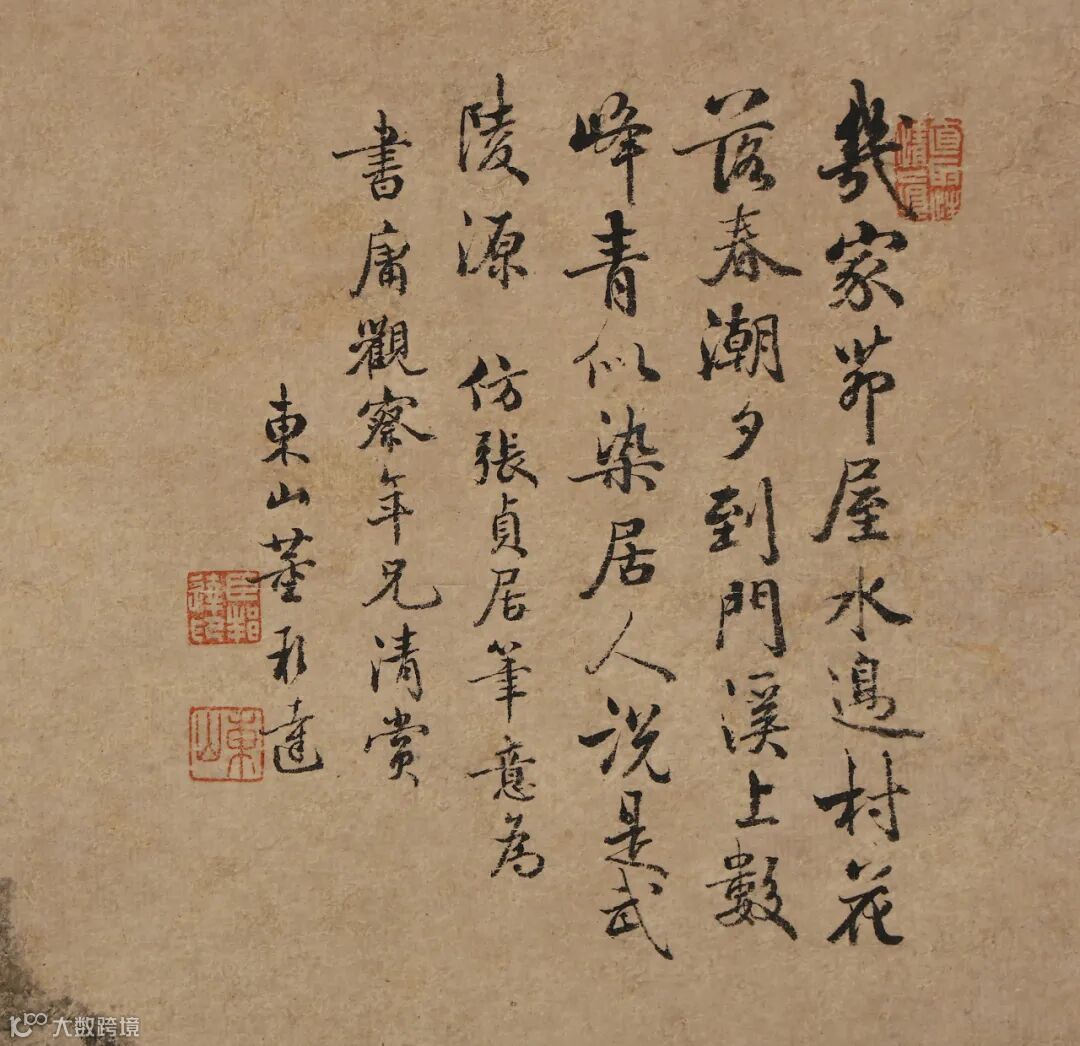 幾家茆屋水邊村花
落春潮夕到門溪上數
峰青似染居人説是武
陵源 仿張貞居筆意為
書庸觀察年兄清賞
東山董邦達
臣邦達印
東山
大数跨境